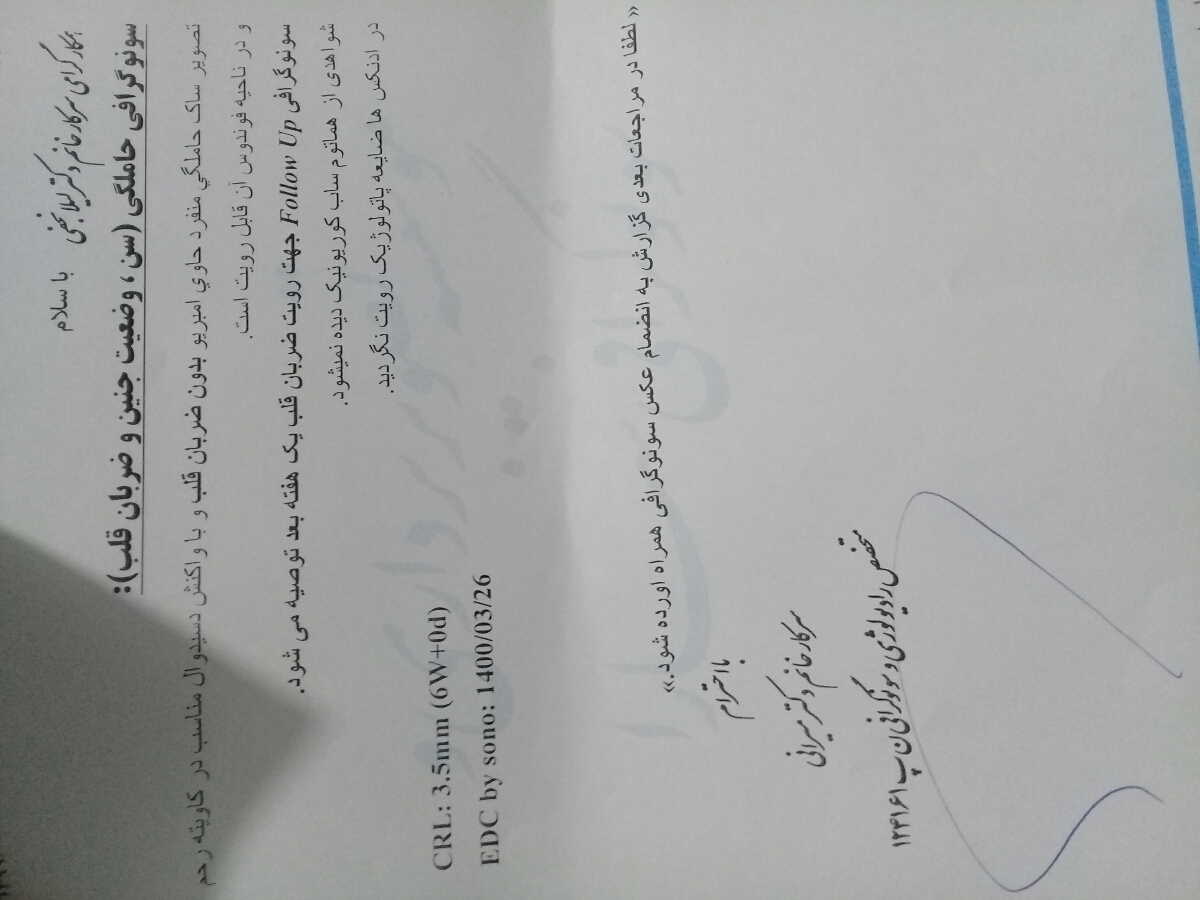 همکار گرامی سرکار خانم دکتر لیلا نجفی
با سلام
سونوگرافی حاملگی (سن ، وضعیت جنین و ضربان قلب):
تصویر ساک حاملگي منفرد حاوي امبريو بدون ضربان قلب و با واکنش دسیدوال مناسب در کاویته رحم
و در ناحیه فوندوس آن قابل رویت است.
سونوگرافی Follow Up جهت رویت ضربان قلب یک هفته بعد توصیه می شود.
شواهدی از هماتوم ساب کوریونیک دیده نمیشود.
در ادنکس ها ضایعه پاتولوژیک رویت نگردید.
CRL: 3.5mm (6W+0d)
EDC by sono: 1400/03/26
« لطفا در مراجعات بعدی گزارش به انضمام عکس سونوگرافی همراه اورده شود.»
با احترام
سرکار خانم دکتر میرانی
متخصص رادیولوژی و سونوگرافی ن پ ۱۲۴۱۶۱